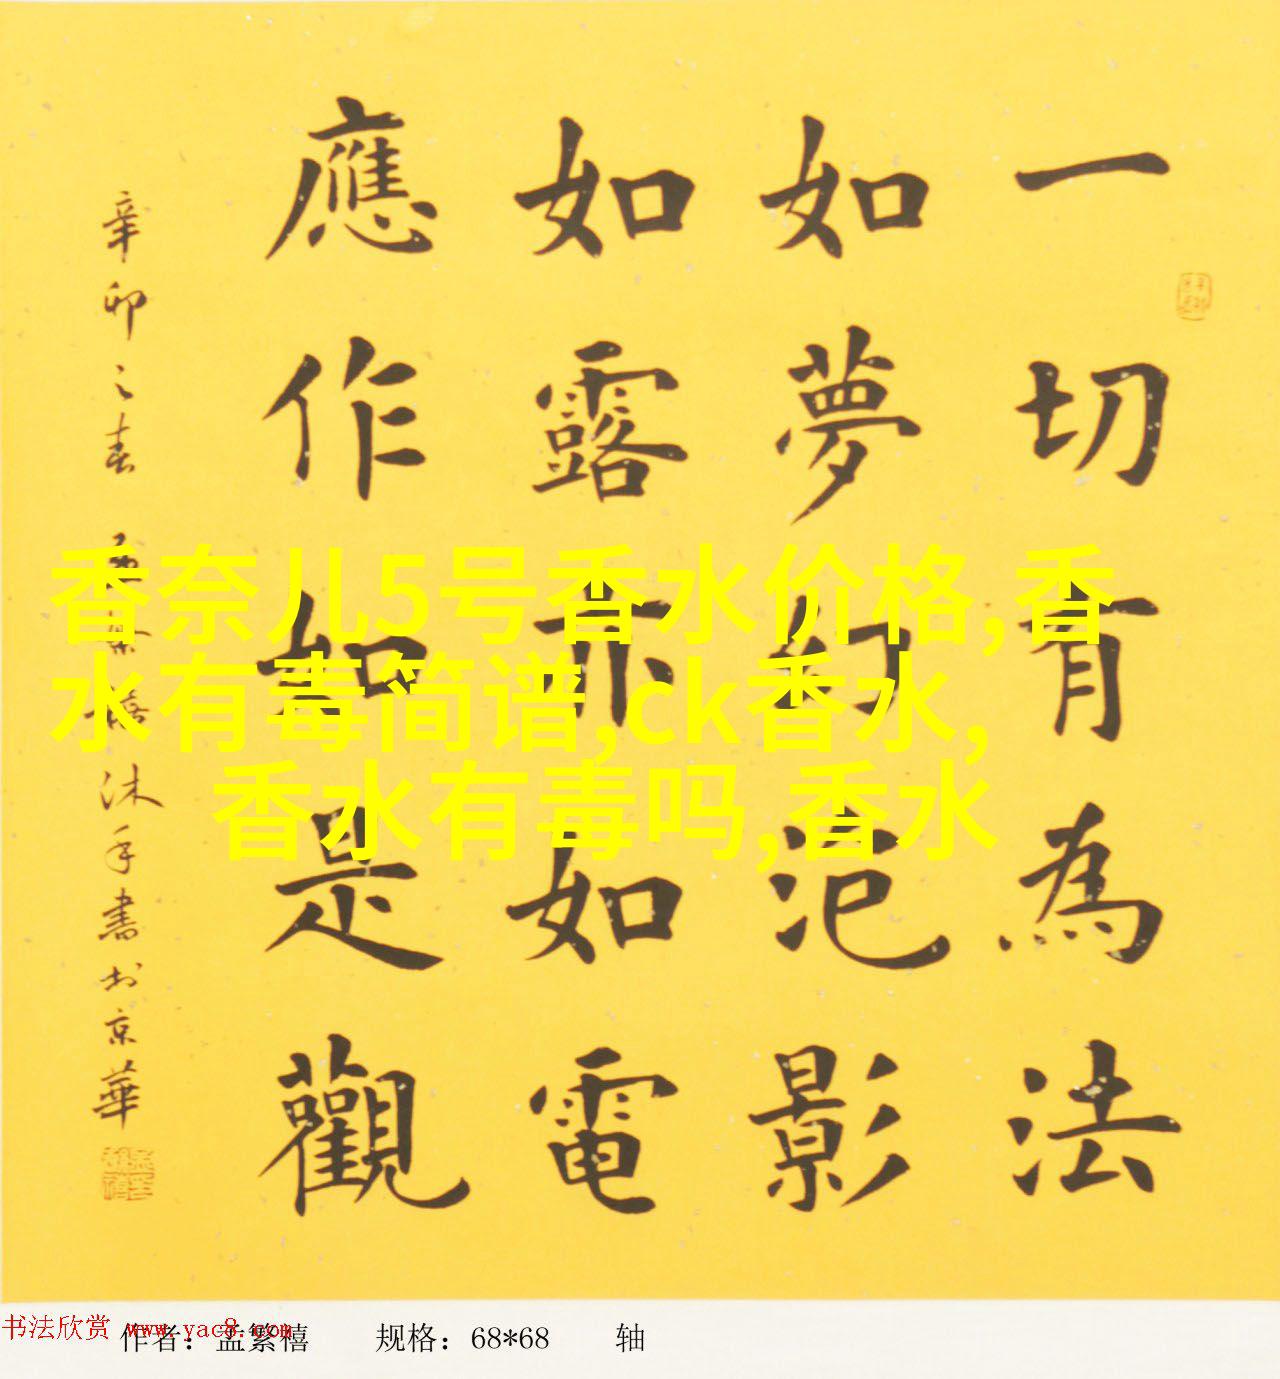 一切有為法
如夢幻泡影
如露亦如電
應作如是觀
辛卯之春 孟繁禧沐手書於京華
香奈儿5号香水价格,香
水有毒简谱,ck香水,
香水有毒吗,香水
书法欣赏 www.yac8.com
作者：孟繁禧 规格：68*68 轴